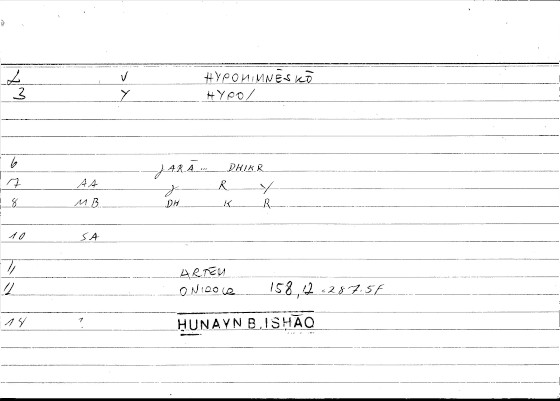 2 V HYPOMIMNĒSKŌ
3 Y HYPO/
6 JARĀ... DHIKR
7 AA J R Y
8 MB DH K R
10 SA
11 ARTEM
12 158,12 = 287.5F
14 ? ḤUNAYN B. ISḤĀQ